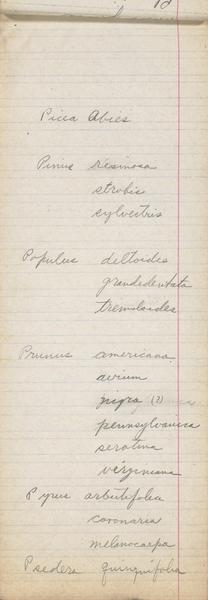 18
Picea Abies
Pinus resinosa
strobis
sylvestris
Populus deltoides
grandedentata
tremuloides
Prunus americana
avium
nigra (?)
pennsylvanica
serotina
virginiana
Pyrus arbutifolia
coronaria
melanocarpa
Psedera quinquifolia